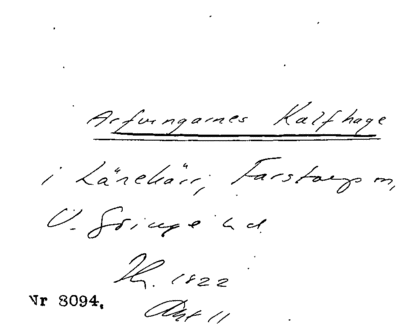 Arfvingarnes Kalfhage
i Länekärr, Färstorp m,
Ö. Göinge hd.
Th. 1822
Akt 11
Nr 8094.